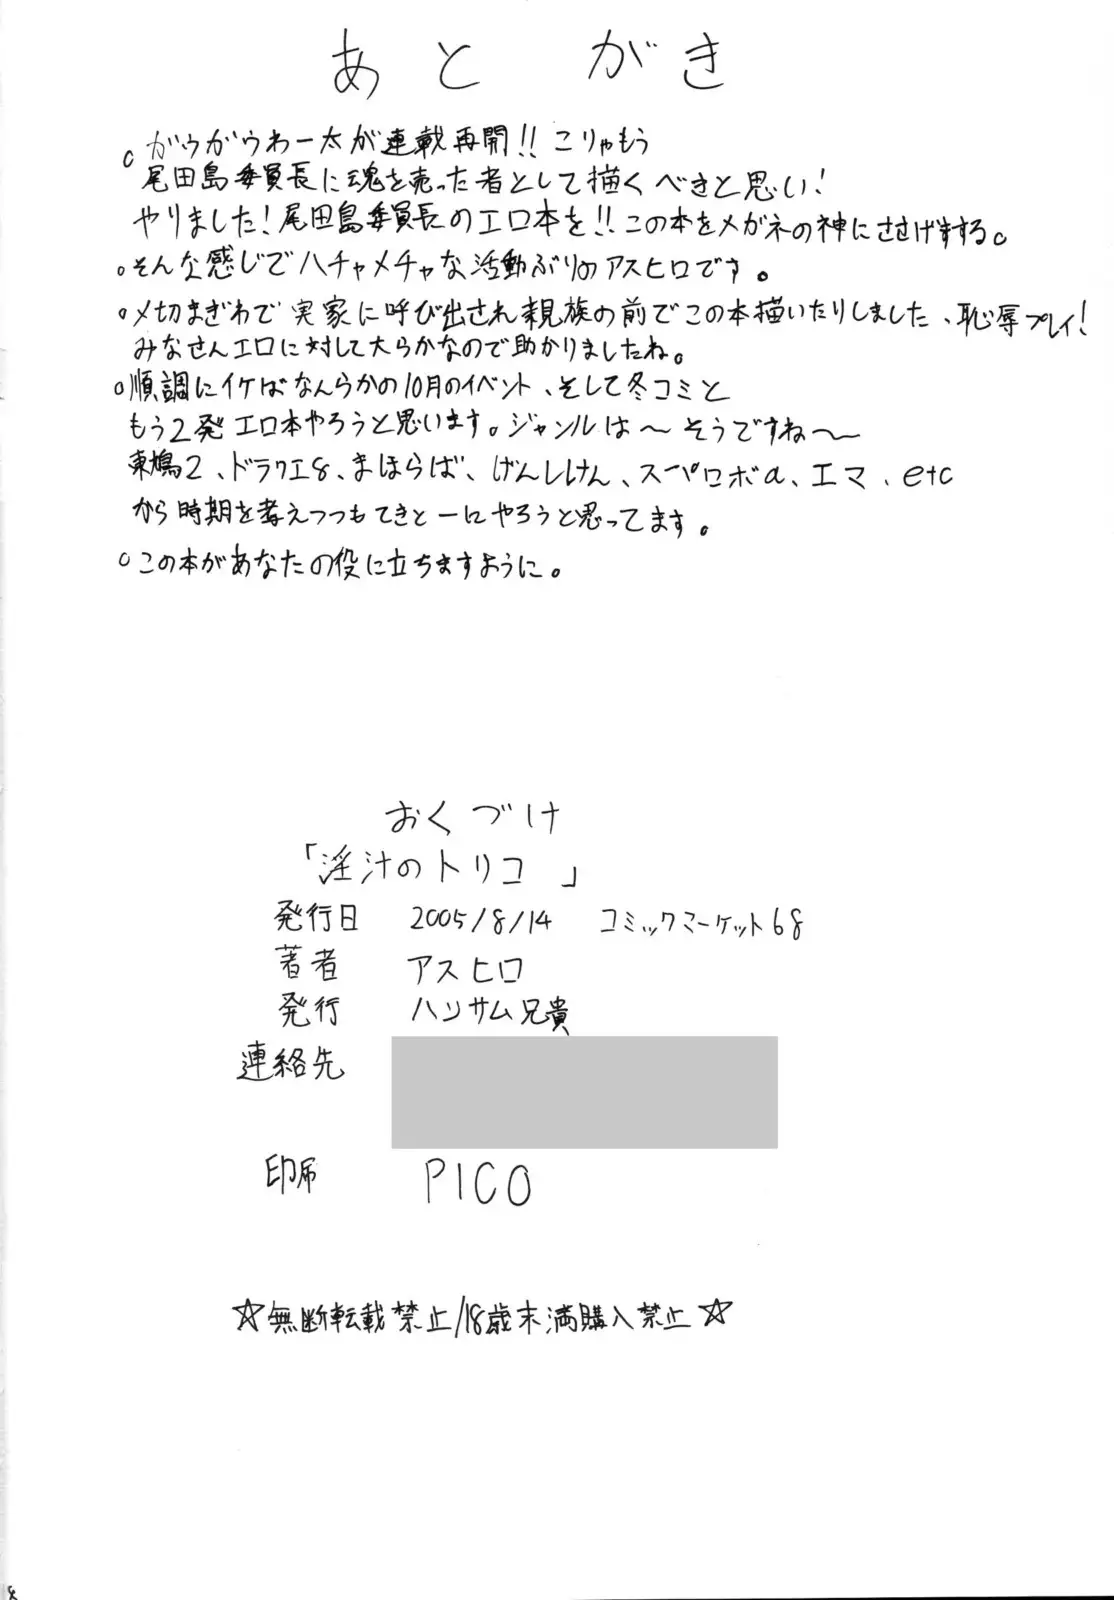 あとがき
○ガウガウわー太が連載再開!!こりゃもう
尾田島委員長に魂を売った者として描くべきと思い!
やりました!尾田島委員長のエロ本を!!この本をメガネの神にささげまする。
○そんな感じでハチャメチャな活動ぶりのアスヒロです。
○〆切まぎわで実家に呼び出され親族の前でこの本描いたりしました、恥辱プレイ!
みなさんエロに対して大らかなので助かりましたね。
○順調にイケばなんらかの10月のイベント、そして冬コミと
もう2発エロ本やろうと思います。ジャンルは〜そうですね〜
東鳩2、ドラクエ8、まほらば、げんしけん、スーパロボα、エマ、etc
から時期を考えつつもてきとーにやろうと思ってます。
○この本があなたの役に立ちますように。
おくづけ
「淫汁のトリコ」
発行日 2005/8/14 コミックマーケット68
著者 アスヒロ
発行 ハンサム兄貴
連絡先
印刷 PICO
☆無断転載禁止/18歳未満購入禁止☆
8